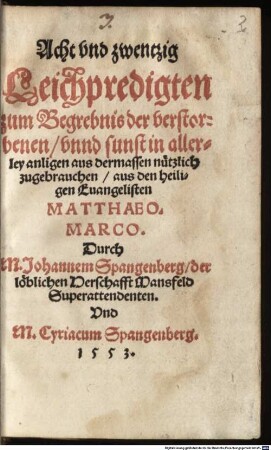 3.
Acht vnd zwentzig
Leichpredigten
zum Begrebnis der verstor-
benen / vnnd sunst in aller-
ley anligen aus dermassen nützlich
zugebrauchen / aus den heili-
gen Euangelisten
MATTHAEO.
MARCO.
Durch
M. Johannem Spangenberg / der
löblichen Herschafft Mansfeld
Superattendenten.
Vnd
M. Cyriacum Spangenberg.
1 5 5 3.